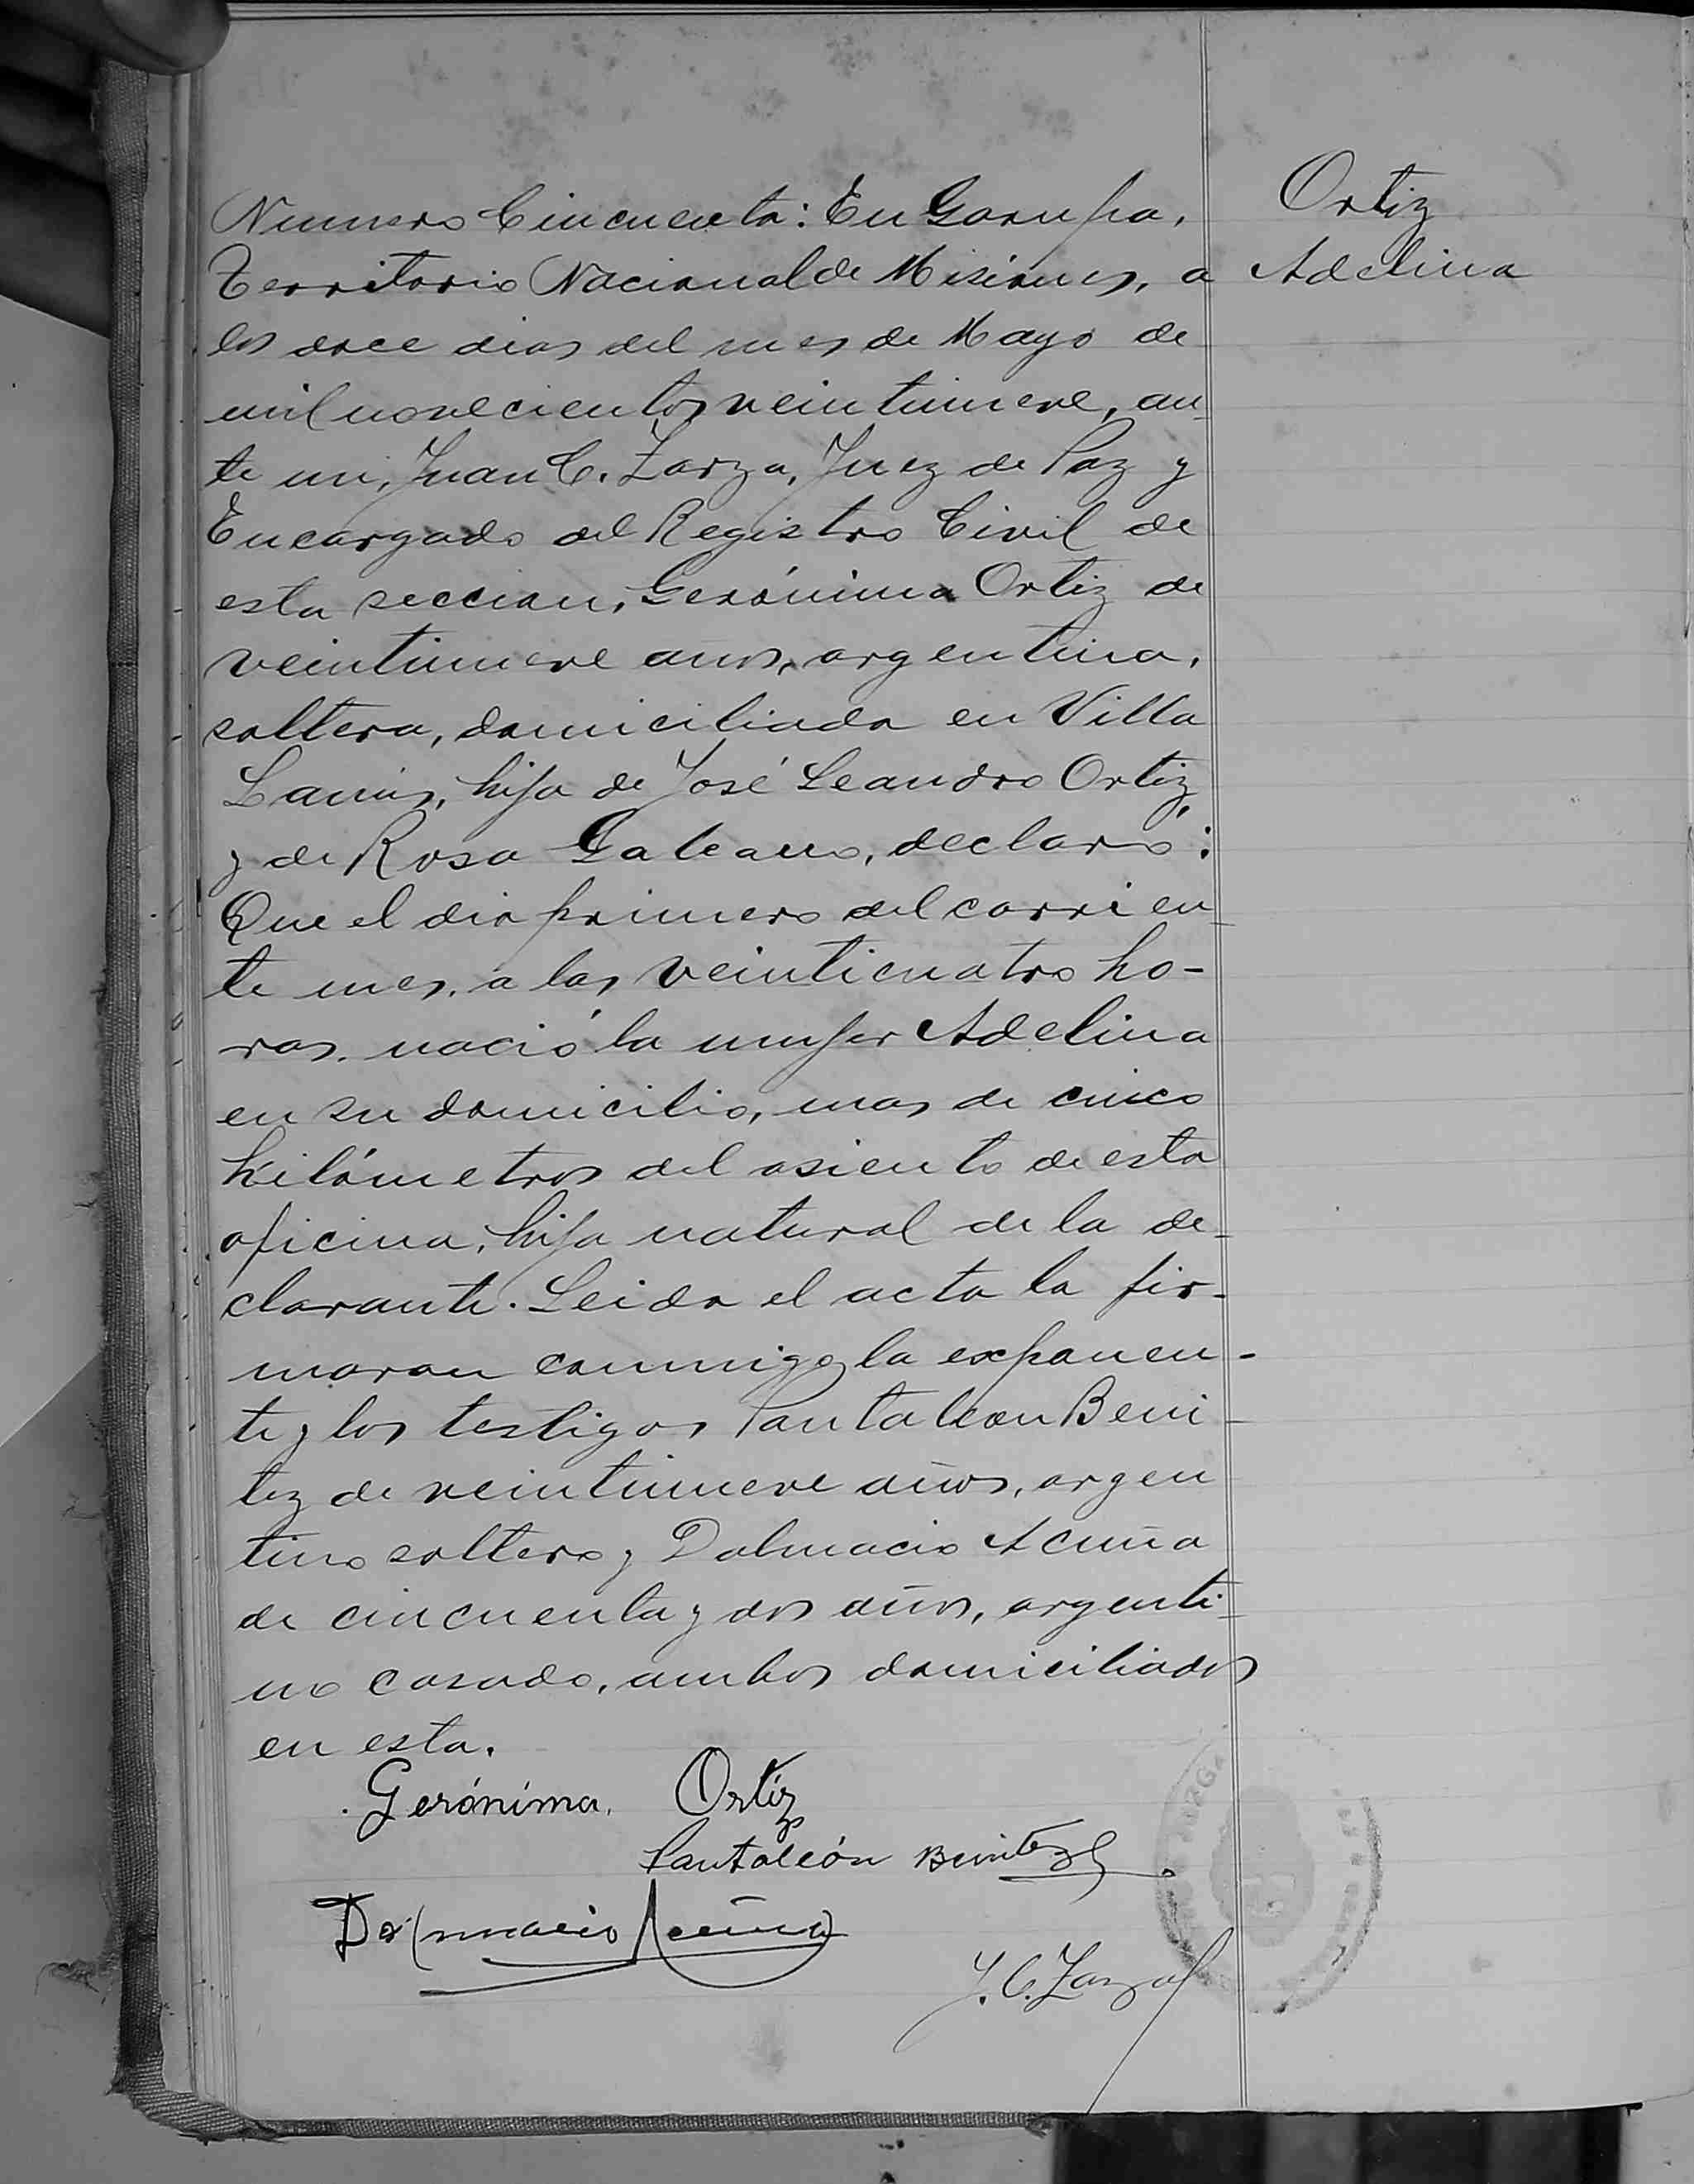 Ortiz
Adelina
Numero Cincuenta: En Garupa,
Territorio Nacional de Misiones, a
los doce dias del mes de Mayo de
mil novecientos veintinueve, an-
te mi, Juan C. Zarza, Juez de Paz y
Encargado del Registro Civil de
esta seccion, Gerónima Ortiz de
veintinueve años, argentina,
soltera, domiciliada en Villa
Lanús, hija de José Leandro Ortiz,
y de Rosa Galeano, declaró:
Que el dia primero del corrien-
te mes, a las veinticuatro ho-
ras, nació la mujer Adelina
en su domicilio, mas de cinco
kilómetros del asiento de esta
oficina, hija natural de la de-
clarante. Leida el acta la fir-
maron conmigo, la exponen-
te y los testigos Pantaleon Beni-
tez de veintinueve años, argen
tino soltero y Dalmacio Acuña
de cincuenta y dos años, argenti-
no casado, ambos domiciliados
en esta.
Gerónima Ortiz
Pantaleón Benitez
Dalmacio Acuña
J. C. Zarza